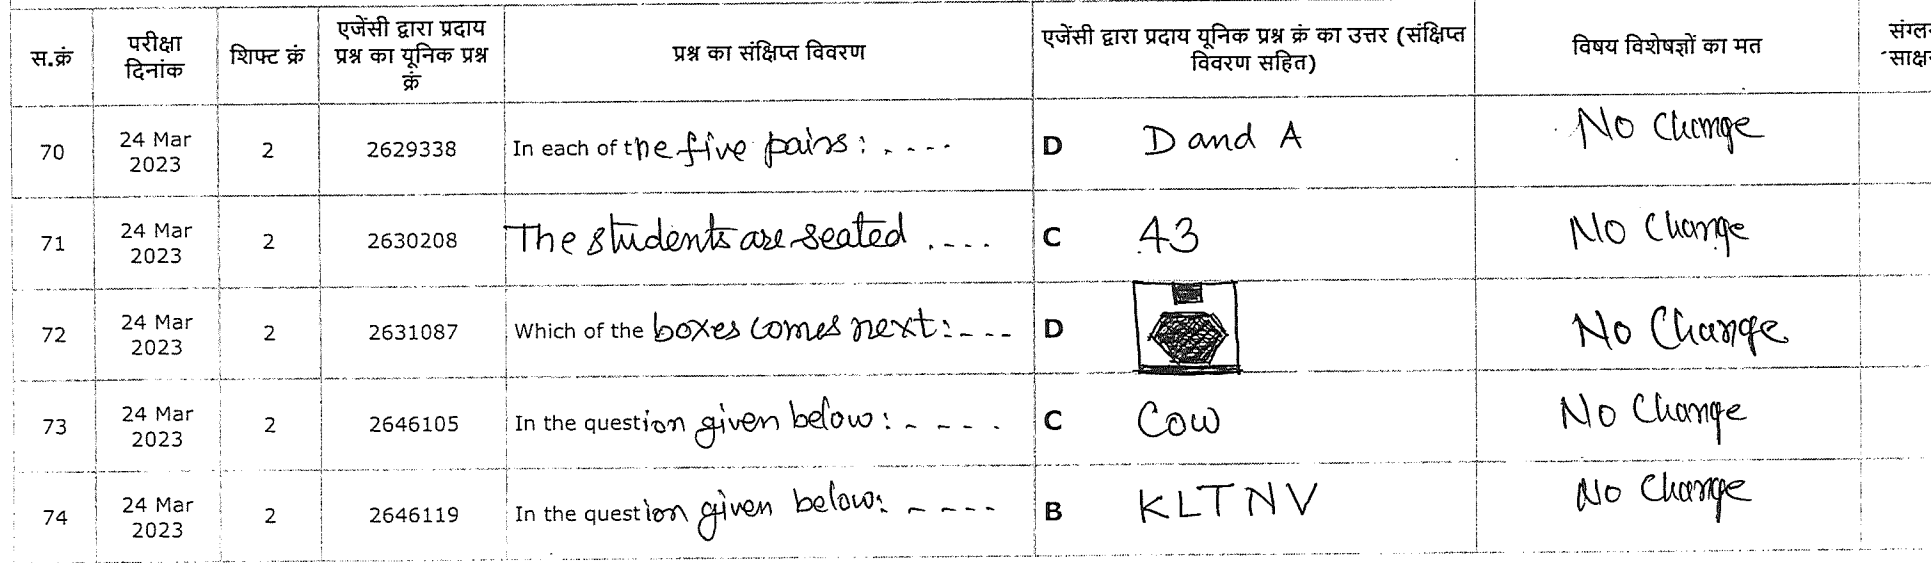 स.क्रं परीक्षा दिनांक शिफ्ट क्रं एजेंसी द्वारा प्रदाय प्रश्न का यूनिक प्रश्न क्रं प्रश्न का संक्षिप्त विवरण एजेंसी द्वारा प्रदाय यूनिक प्रश्न क्रं का उत्तर (संक्षिप्त विवरण सहित) विषय विशेषज्ञों का मत
70 24 Mar 2023 2 2629338 In each of the five pairs: .... D D and A No Change
71 24 Mar 2023 2 2630208 The students are seated .... C 43 No Change
72 24 Mar 2023 2 2631087 Which of the boxes comes next: --- D No Change
73 24 Mar 2023 2 2646105 In the question given below: ---- C Cow No Change
74 24 Mar 2023 2 2646119 In the question given below: ---- B KLTNV No Change